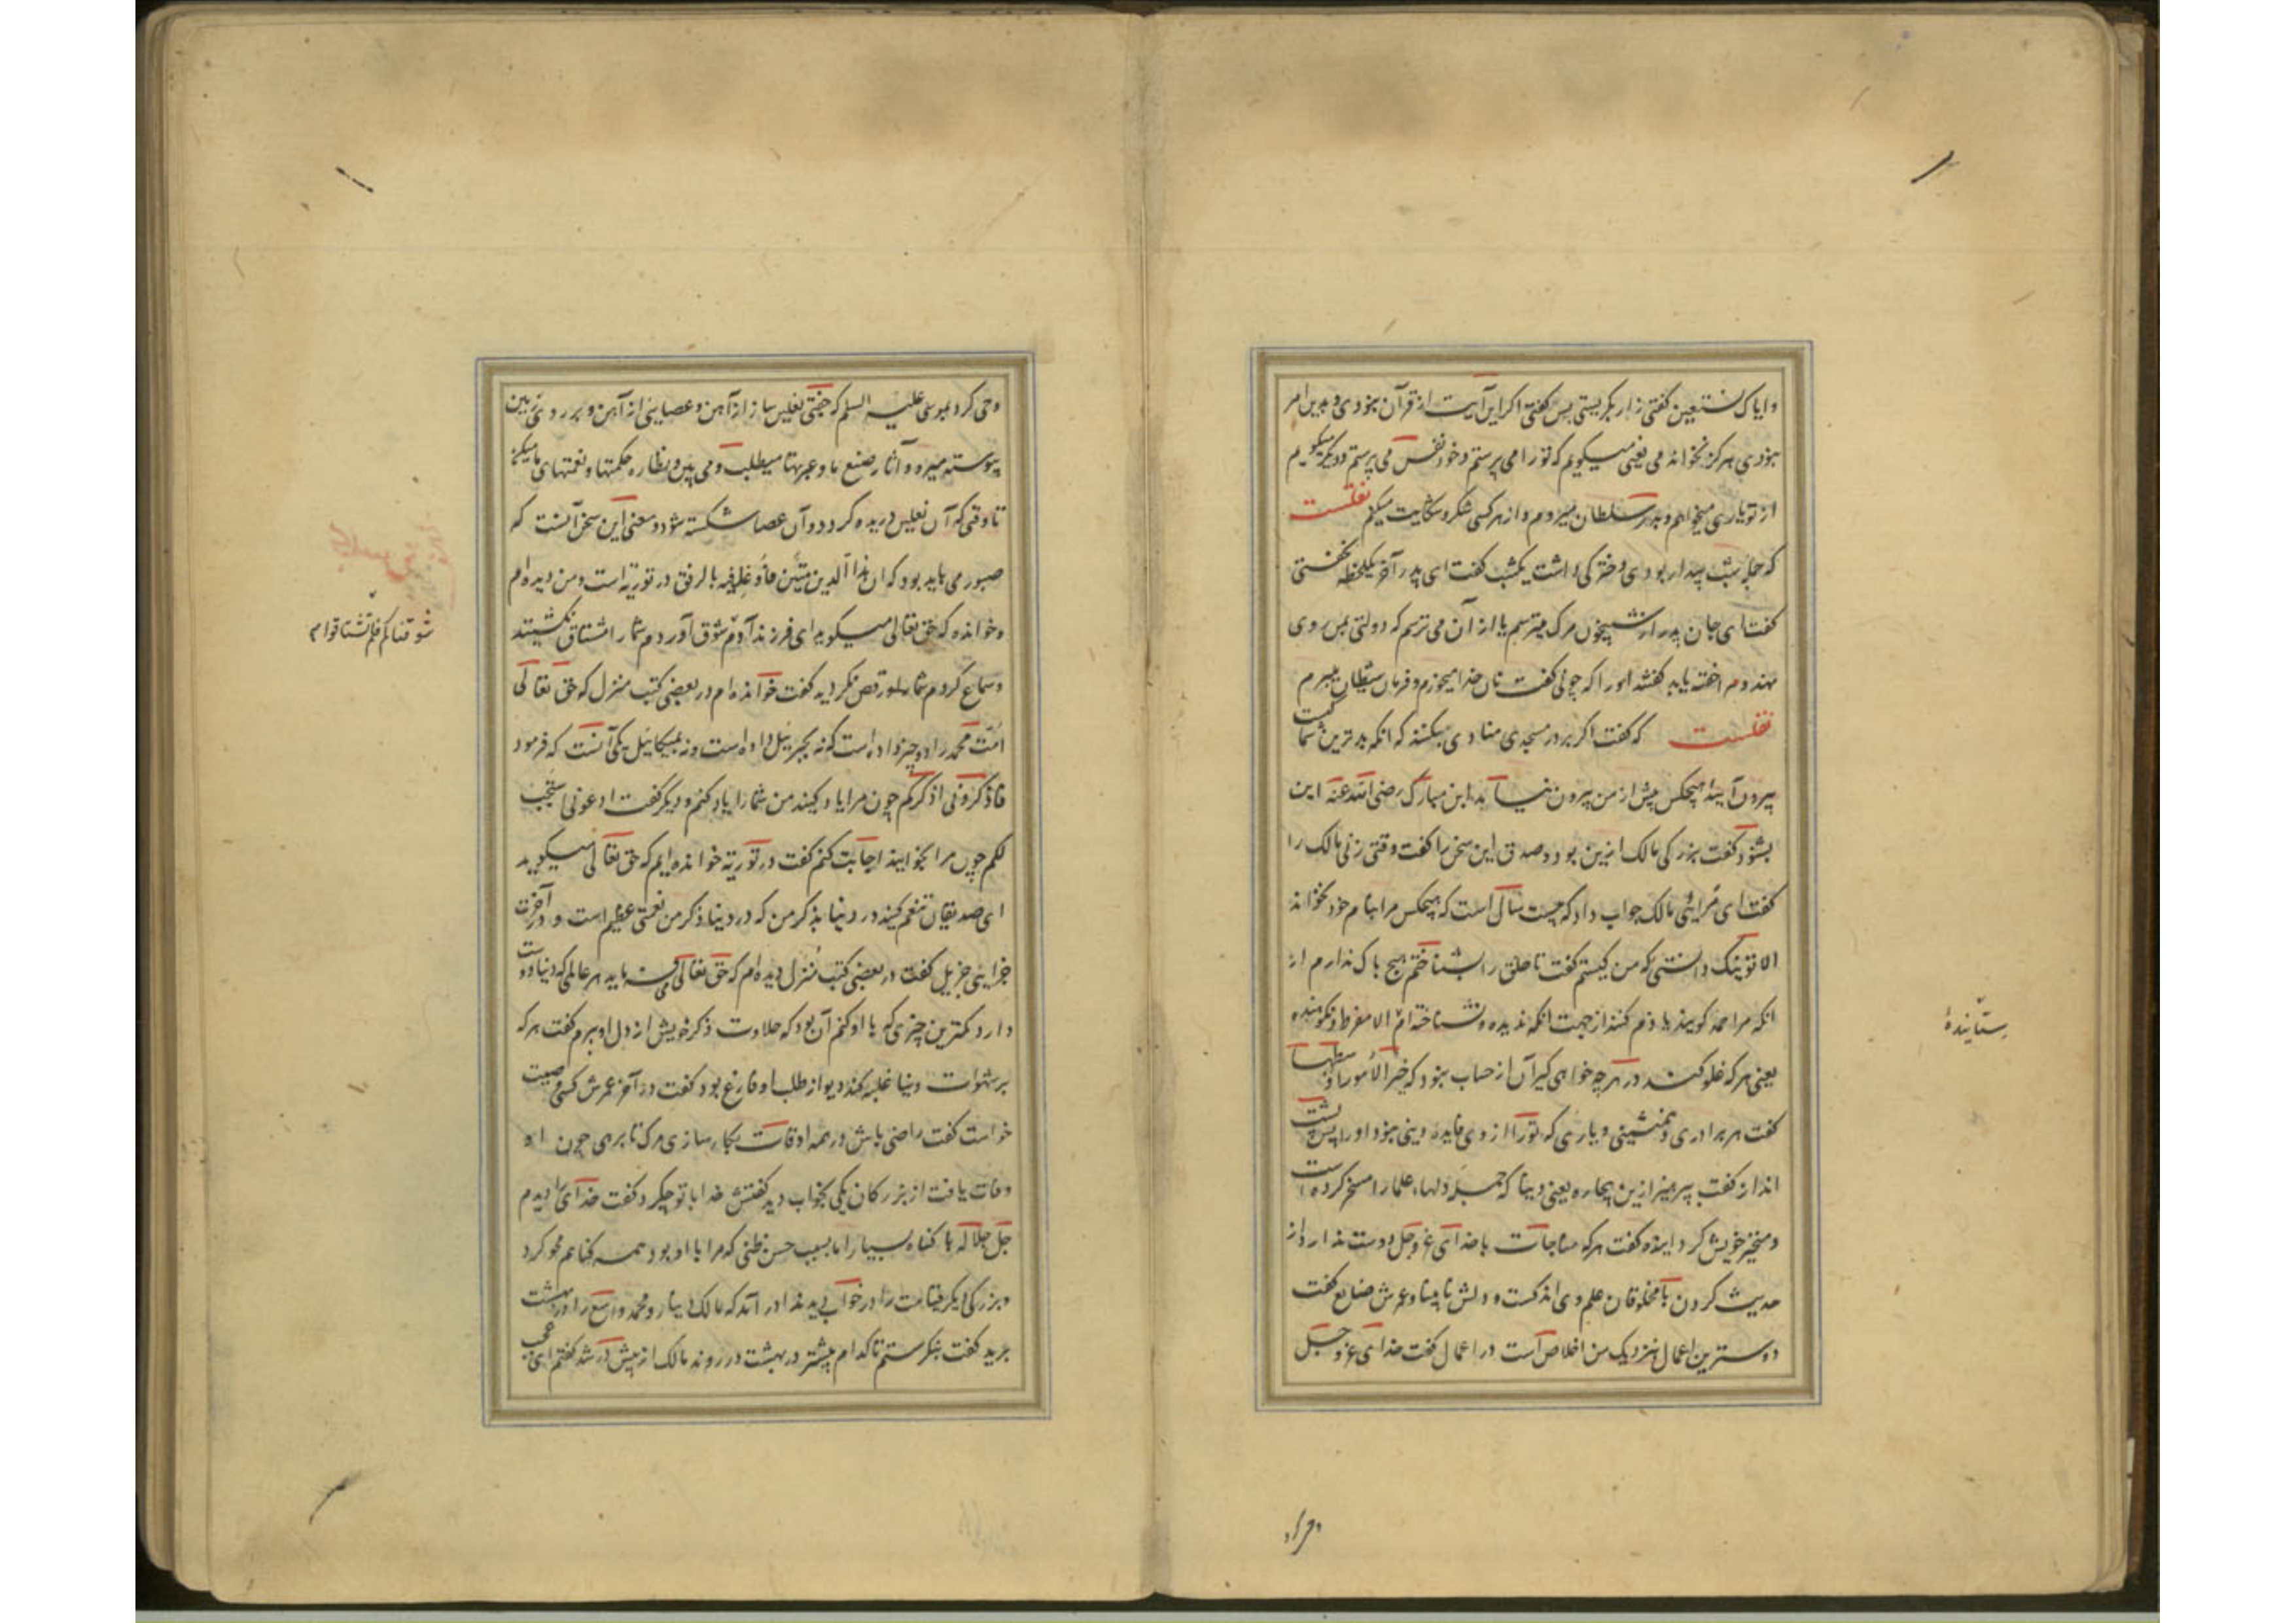 وایاک نستعین گفتی زار بگریستی پس گفتی اگر این آیت از قرآن نبودی و بدین امر
نبودی هرگز نخواندمی یعنی میگویم که تو را می پرستم و خود نفس می پرستم و دیگر میگویم
از تو یاری میخواهم و بدر سلطان میروم و از هر کسی شکر و شکایت میکنم نقلست
که جمله شب بیدار بودی دخترکی داشت یکشب گفت ای پدر آخر یکلحظه نخفتی
گفت ای جان پدر از شبیخون مرگ میترسم یا از آن می ترسم که دولتی بمن روی
نهد و مرا خفته یابد گفتند او را که چونی گفت نان خدا میخورم و فرمان شیطان میبرم
نقلست که گفت اگر بر در مسجدی منادی بکنند که آنکه بدترین شما کیست
بیرون آیید هیچکس پیش از من بیرون نیاید ابن مبارک رضی الله عنه این
بشنود گفت بزرگی مالک ازین بود و صدق این سخن را گفت وقتی زنی مالک را
گفت ای مرائی مالک جواب داد که بیست سال است که هیچکس مرا بنام خود نخواند
الا تو نیک دانستی که من کیستم گفت تا خلق را بشناختم هیچ باک ندارم از
آنکه مرا حمد گویند یا ذم کنند از جهت آنکه ندیده و نشناخته ام الا مفرط و نکوهنده
یعنی هر که غلو کند در هر چه خواهی گیر آن از حساب نبود که خیر الامور اوسطها
گفت هر برادری و همنشینی و یاری که تو را از وی فایده دینی نبود او را پس پشت
انداز گفت بپرهیز ازین سحاره یعنی دنیا که جمله دلهاء علما را مسخر کرده است
و مسخر خویش گردانیده گفت هر که مناجات با خدای عز و جل دوست ندارد از
حدیث کردن با مخلوقان علم وی اندکست و دلش نابینا و عمرش ضایع گفت
دوسترین اعمال نزدیک من اخلاص است در اعمال گفت خدای عز و جل
ستایندهٔ
وحی کرد بموسی علیه السلم که جفتی نعلین ساز از آهن و عصایی از آهن و بر روی زمین
پیوسته میرو و آثار صنع ما و عبرتها میطلب و می بین و نظاره حکمتها و نعمتهای ما میکن
تا وقتی که آن نعلین دریده گردد و آن عصا شکسته شود و معنی این سخن آنست که
صبور می باید بود که ان هذا الدین متین فاوغل فیه بالرفق در توریة است و من دیده ام
و خوانده که حق تعالی میگوید ای فرزند آدم شوق آوردم شما را مشتاق نگشتید
و سماع کردم شما را رقص نکردید گفت خوانده ام در بعضی کتب منزل که حق تعالی
امت محمد را دو چیز داده است که نه بجبرئیل داده است و نه بمیکائیل یکی آنست که فرمود
فاذکرونی اذکرکم چون مرا یاد کنید من شما را یاد کنم و دیگر گفت ادعونی استجب
لکم چون مرا بخوانید اجابت کنم گفت در توریة خوانده ایم که حق تعالی میگوید
ای صدیقان تنعم کنید در دنیا بذکر من که در دنیا ذکر من نعمتی عظیم است و در آخرت
جزایی جزیل گفت در بعضی کتب منزل دیده ام که حق تعالی می فرماید هر عالمی که دنیا دوست
دارد کمترین چیزی که با او کنم آن بود که حلاوت ذکر خویش از دل او ببرم گفت هر که
بر شهوات دنیا غلبه کند دیو از طلب او فارغ بود گفت در آخر عمرش کسی وصیت
خواست گفت راضی باش در همه اوقات بکار سازی هر که تا برهی چون او
وفات یافت از بزرگان یکی بخواب دید گفتش خدا با تو چه کرد گفت خدای را دیدم
جل جلاله با گناه بسیار اما بسبب حسن ظنی که مرا با او بود همه گناهم محو کرد
و بزرگی دیگر قیامت را در خواب دید ندا در آمد که مالک دینار و محمد واسع را در بهشت
برید گفت بنگرستم تا کدام پیشتر در بهشت در روند مالک از پیش در شد گفتم ای عجب
شوقناکم فلم تشتاقوا م